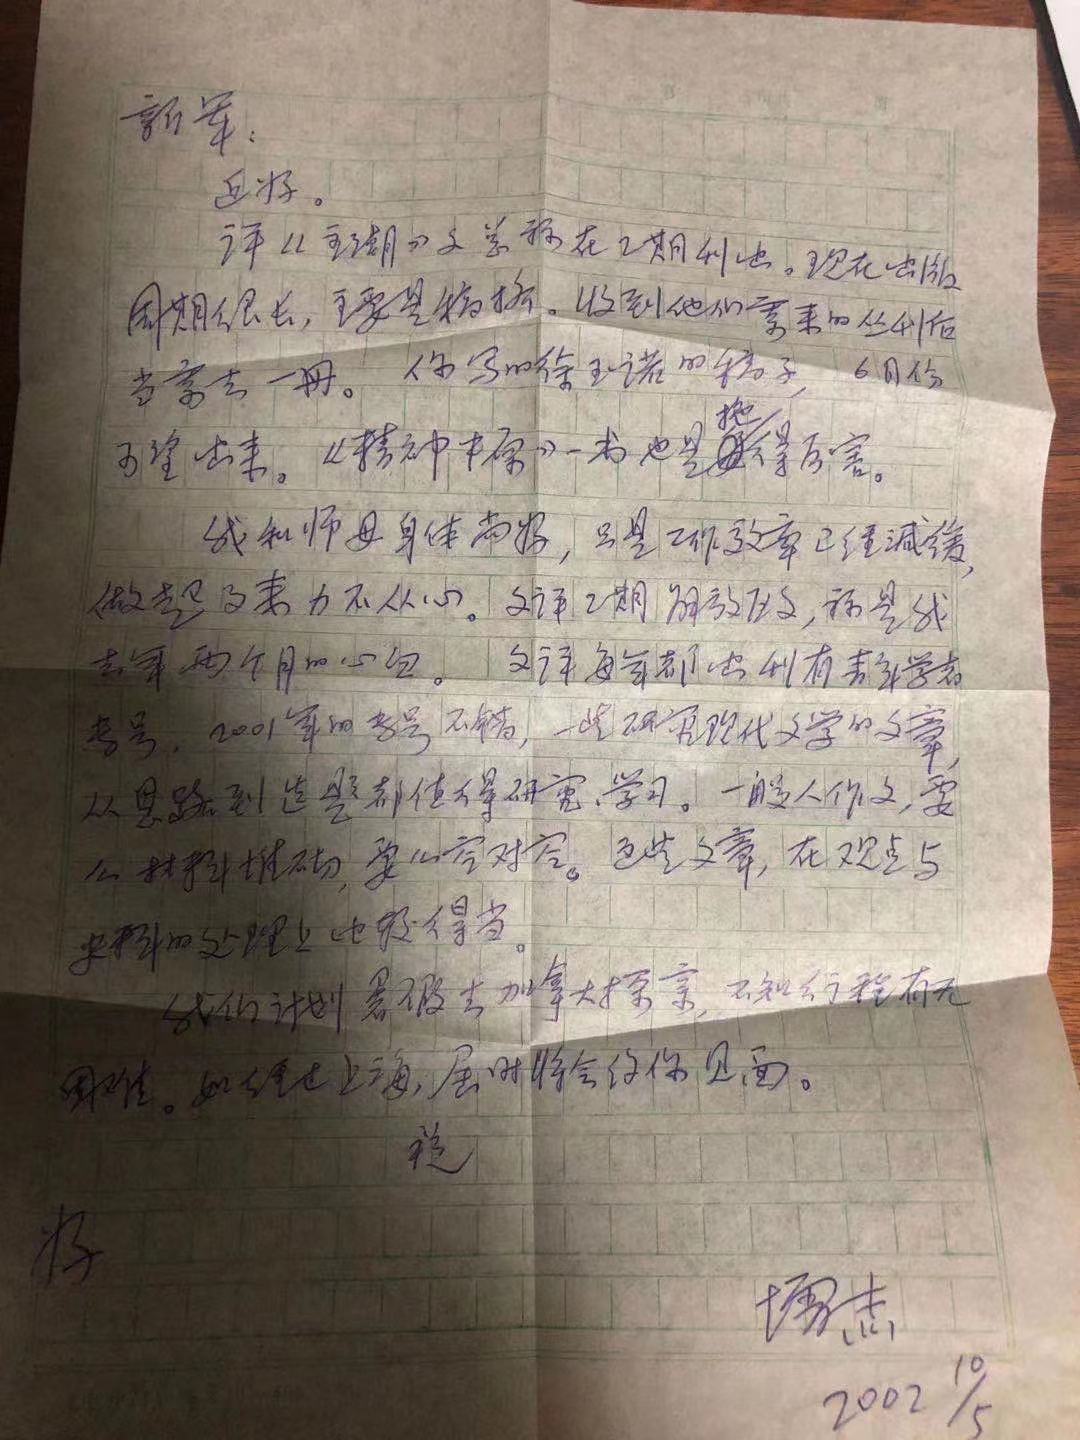 新军：
近好。
评《主潮》文总称在2期刊出。现在出版
周期很长，主要是稿挤。收到他们寄来的丛刊后
当寄去一册。你写的徐玉诺的稿子，6月份
可望出来。《精神中原》一书也是拖得厉害。
我和师母身体尚好，只是工作效率已经减缓，
做起事来力不从心。文评2期解放区文，算是我
去年两个月的心血。文评每年都出刊有青年学者
专号，2001年的专号不错，一些研究现代文学的文章，
从思路到选题都值得研究、学习。一般人作文，要
么材料堆砌，要么空对空。这些文章，在观点与
史料的处理上也较得当。
我们计划暑假去加拿大探亲，不知行程有无
困难。如经过上海，届时将会约你见面。
祝
好
2002 10/5